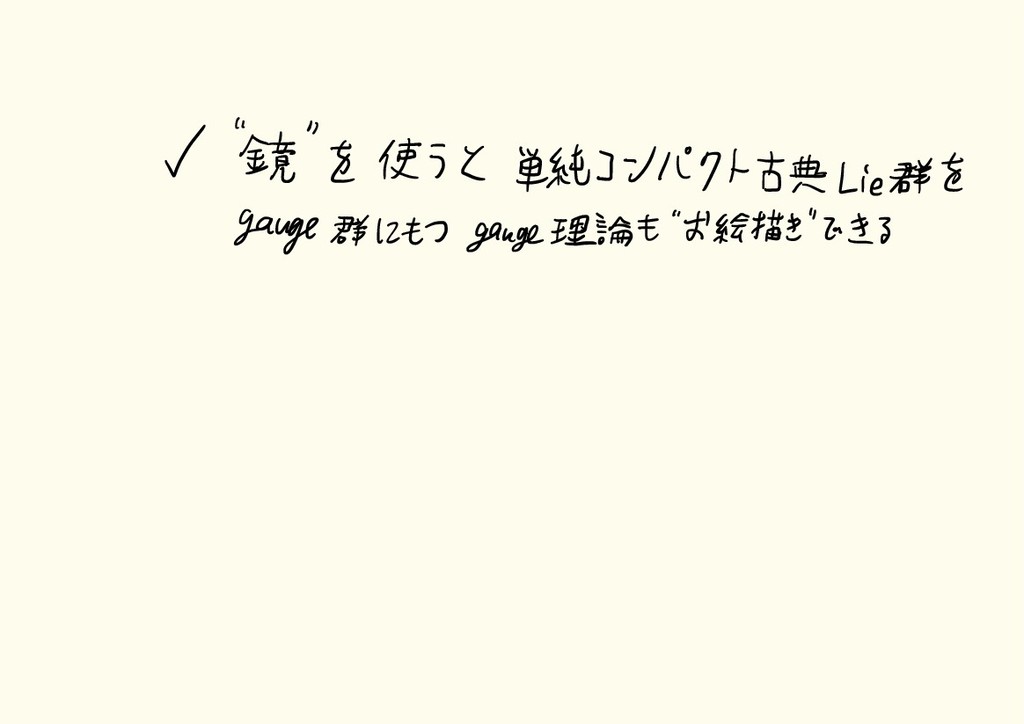 ✓ “鏡”を使うと単純コンパクト古典Lie群を
gauge群にもつgauge理論も“お絵描き”できる